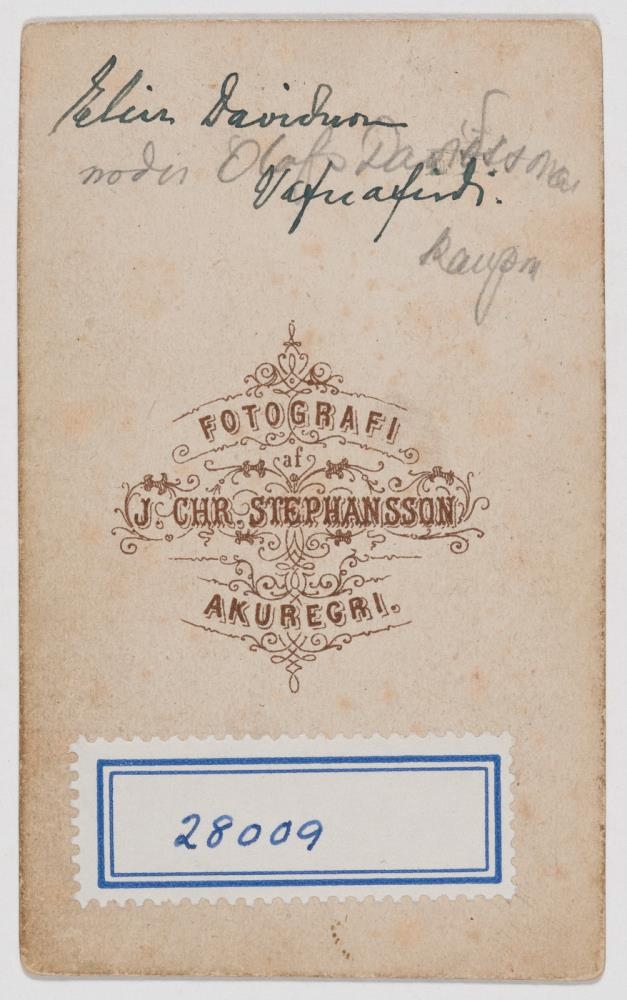 Elin Davidson
moder Olafs Davidssonar
Vafnafirdi.
Raupm
FOTOGRAFI
af
J. CHR. STEPHANSSON
AKUREGRI.
28009